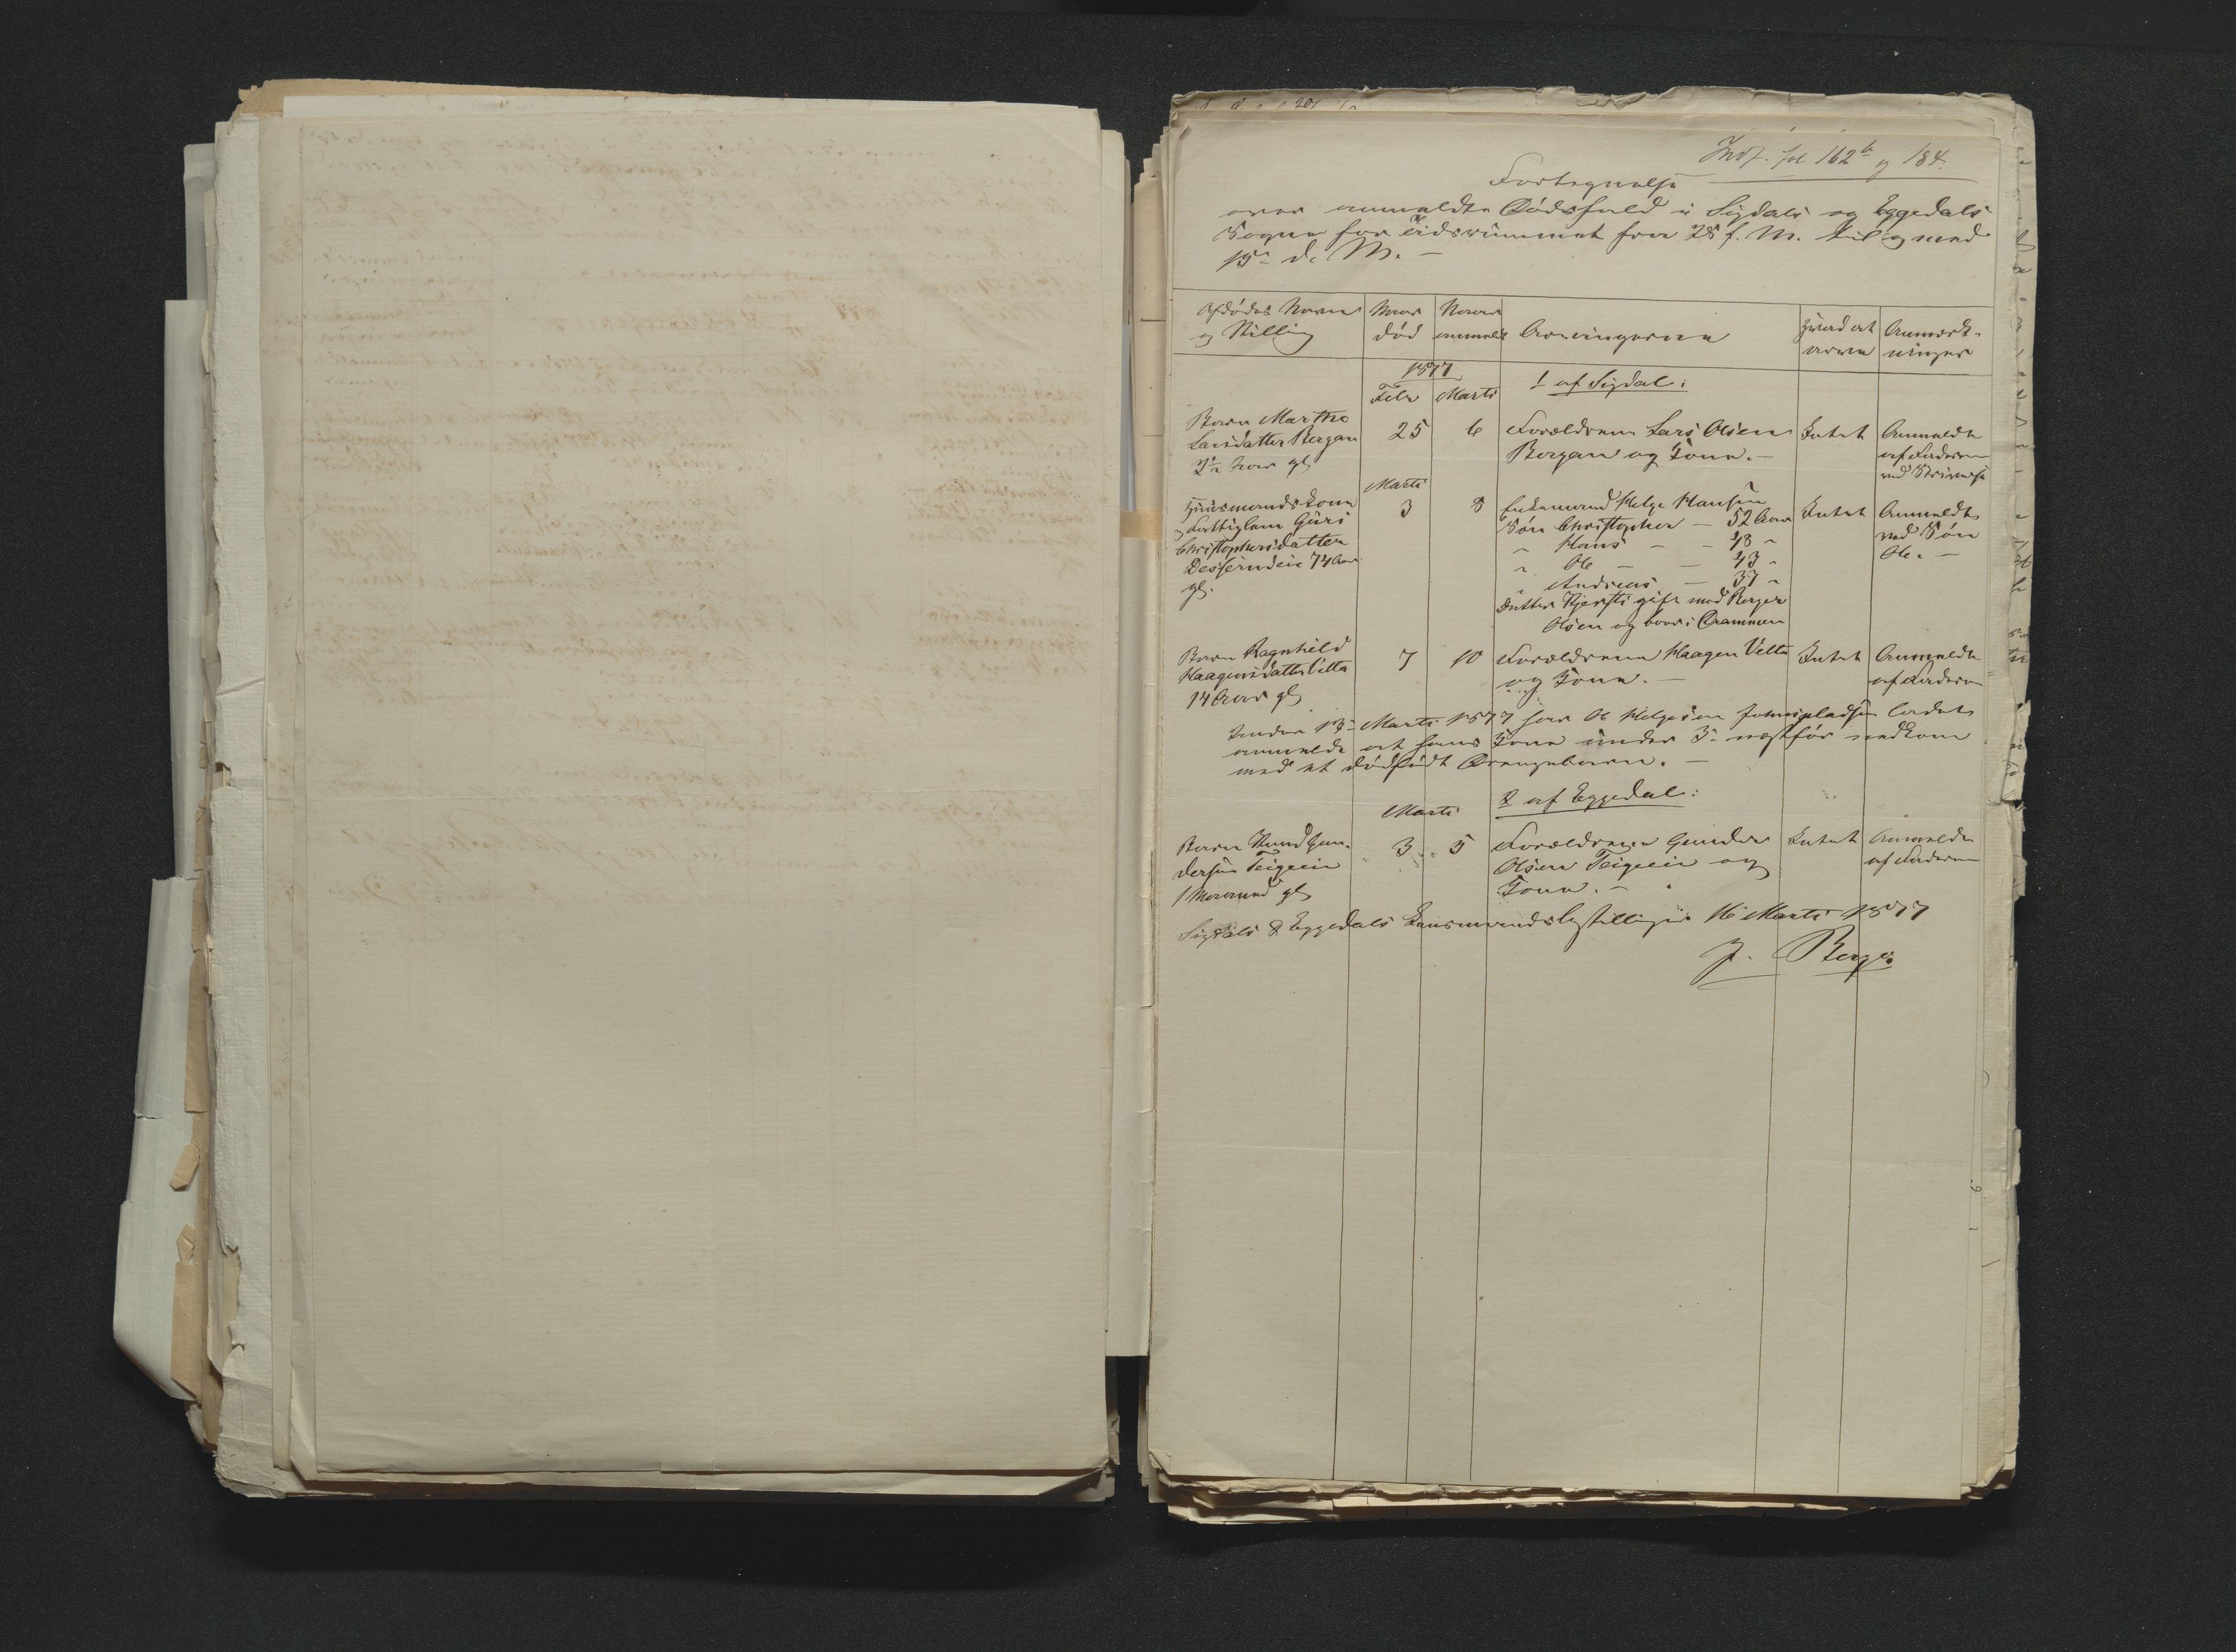 Indf. fol 162b og 184.
Fortegnelse
over anmeldte Dødsfald i Sigdals og Eggedals
Sogne for Tidsrummet fra 28 f. M. til og med
15de d. M. –
Afdødes Navn og Stilling
Naar død
Naar anmeldt
Arvingerne
Hvad at arve
Anmærkninger
1877
Febr Marti 1 af Sigdal:
Barn Marthe
Larsdatter Bergan
2½ Aar gl
25 6 Forældrene Lars Olsen
Bergan og Kone. –
Intet
Anmeldt
af Faderen
ved Skrivelse
Marti
Huusmandskone
og Fattiglem Guri
Christophersdatter
Desserudeie 74 Aar
gl.
3 8 Enkemand Helge Hansen
Søn Christopher – 52 Aar
" Hans – – 48 "
" Ole – – 43 "
" Andreas – 37 "
Datter Kjersti gift med Borger
Olsen og boer i Drammen
Intet
Anmeldt
ved Søn
Ole. –
Barn Ragnhild
Haagensdatter Vetta
14 Aar gl
7 10 Forældrene Haagen Vetta
og Kone. –
Intet
Anmeldt
af Faderen
Under 13de Marti 1877 har Ole Helgesen ladet
anmelde at hans Kone under 3de næstfør nedkom
med et dødfødt Drengebarn. –
Marti 2 af Eggedal:
Barn Knud Gun-
dersen Teigeeie
1 Maaned gl
3 5 Forældrene Gunder
Olsen Teigeeie og
Kone. –
Intet
Anmeldt
af Faderen
Sigdals & Eggedals Lensmandsbestilling 16 Marti 1877
J. Berge.